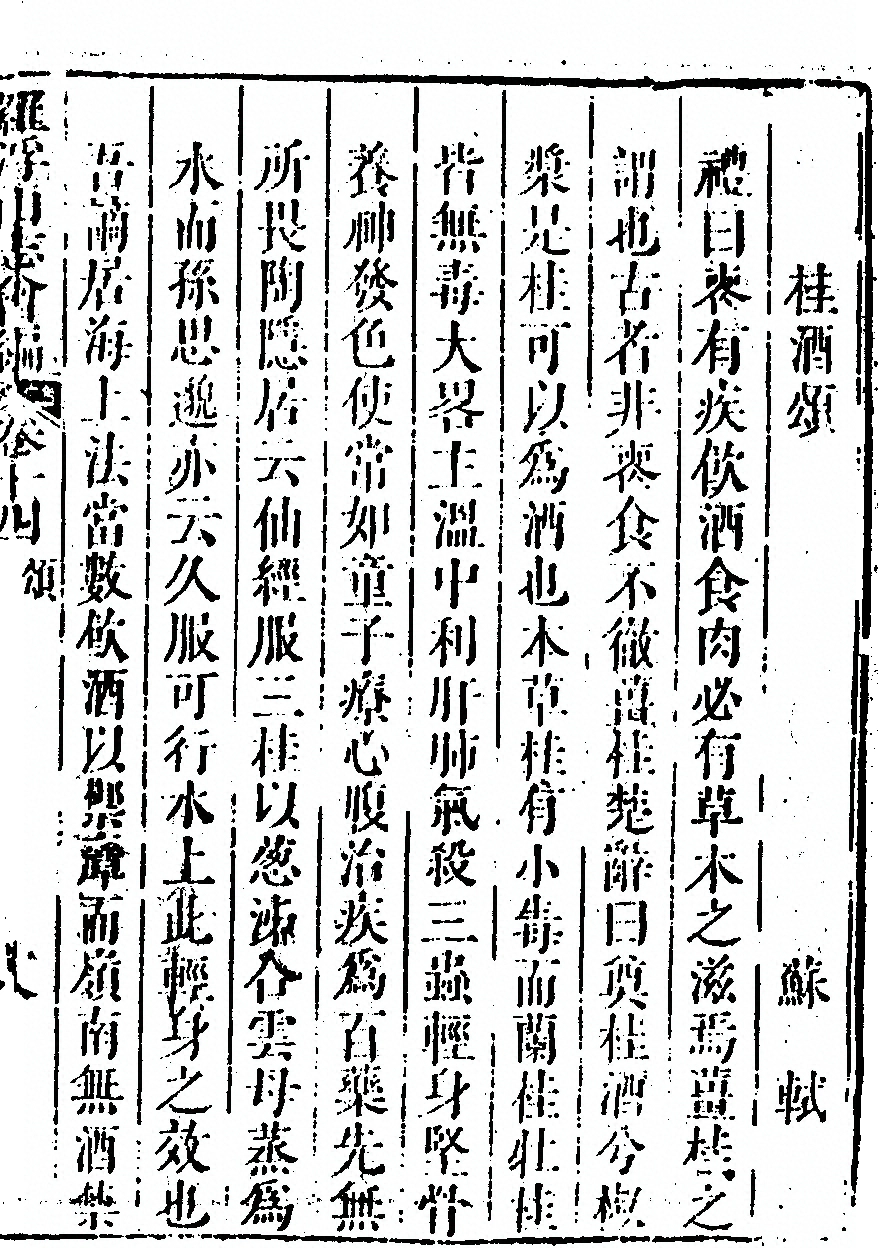 桂酒頌　蘇軾
禮曰喪有疾飲酒食肉必有草木之滋焉薑桂之
謂也古者非喪食不徹薑桂楚辭曰奠桂酒兮椒
漿是桂可以爲酒也本草桂有小毒而菌桂牡桂
皆無毒大畧主溫中利肝肺氣殺三蟲輕身堅骨
養神發色使常如童子療心腹冷疾爲百藥先無
所畏陶隱居云仙經服三桂以葱涕合雲母蒸爲
水而孫思邈亦云久服可行水上此輕身之效也
吾謫居海上法當數飲酒以禦瘴而嶺南無酒禁
羅浮山志會編　卷十四　頌